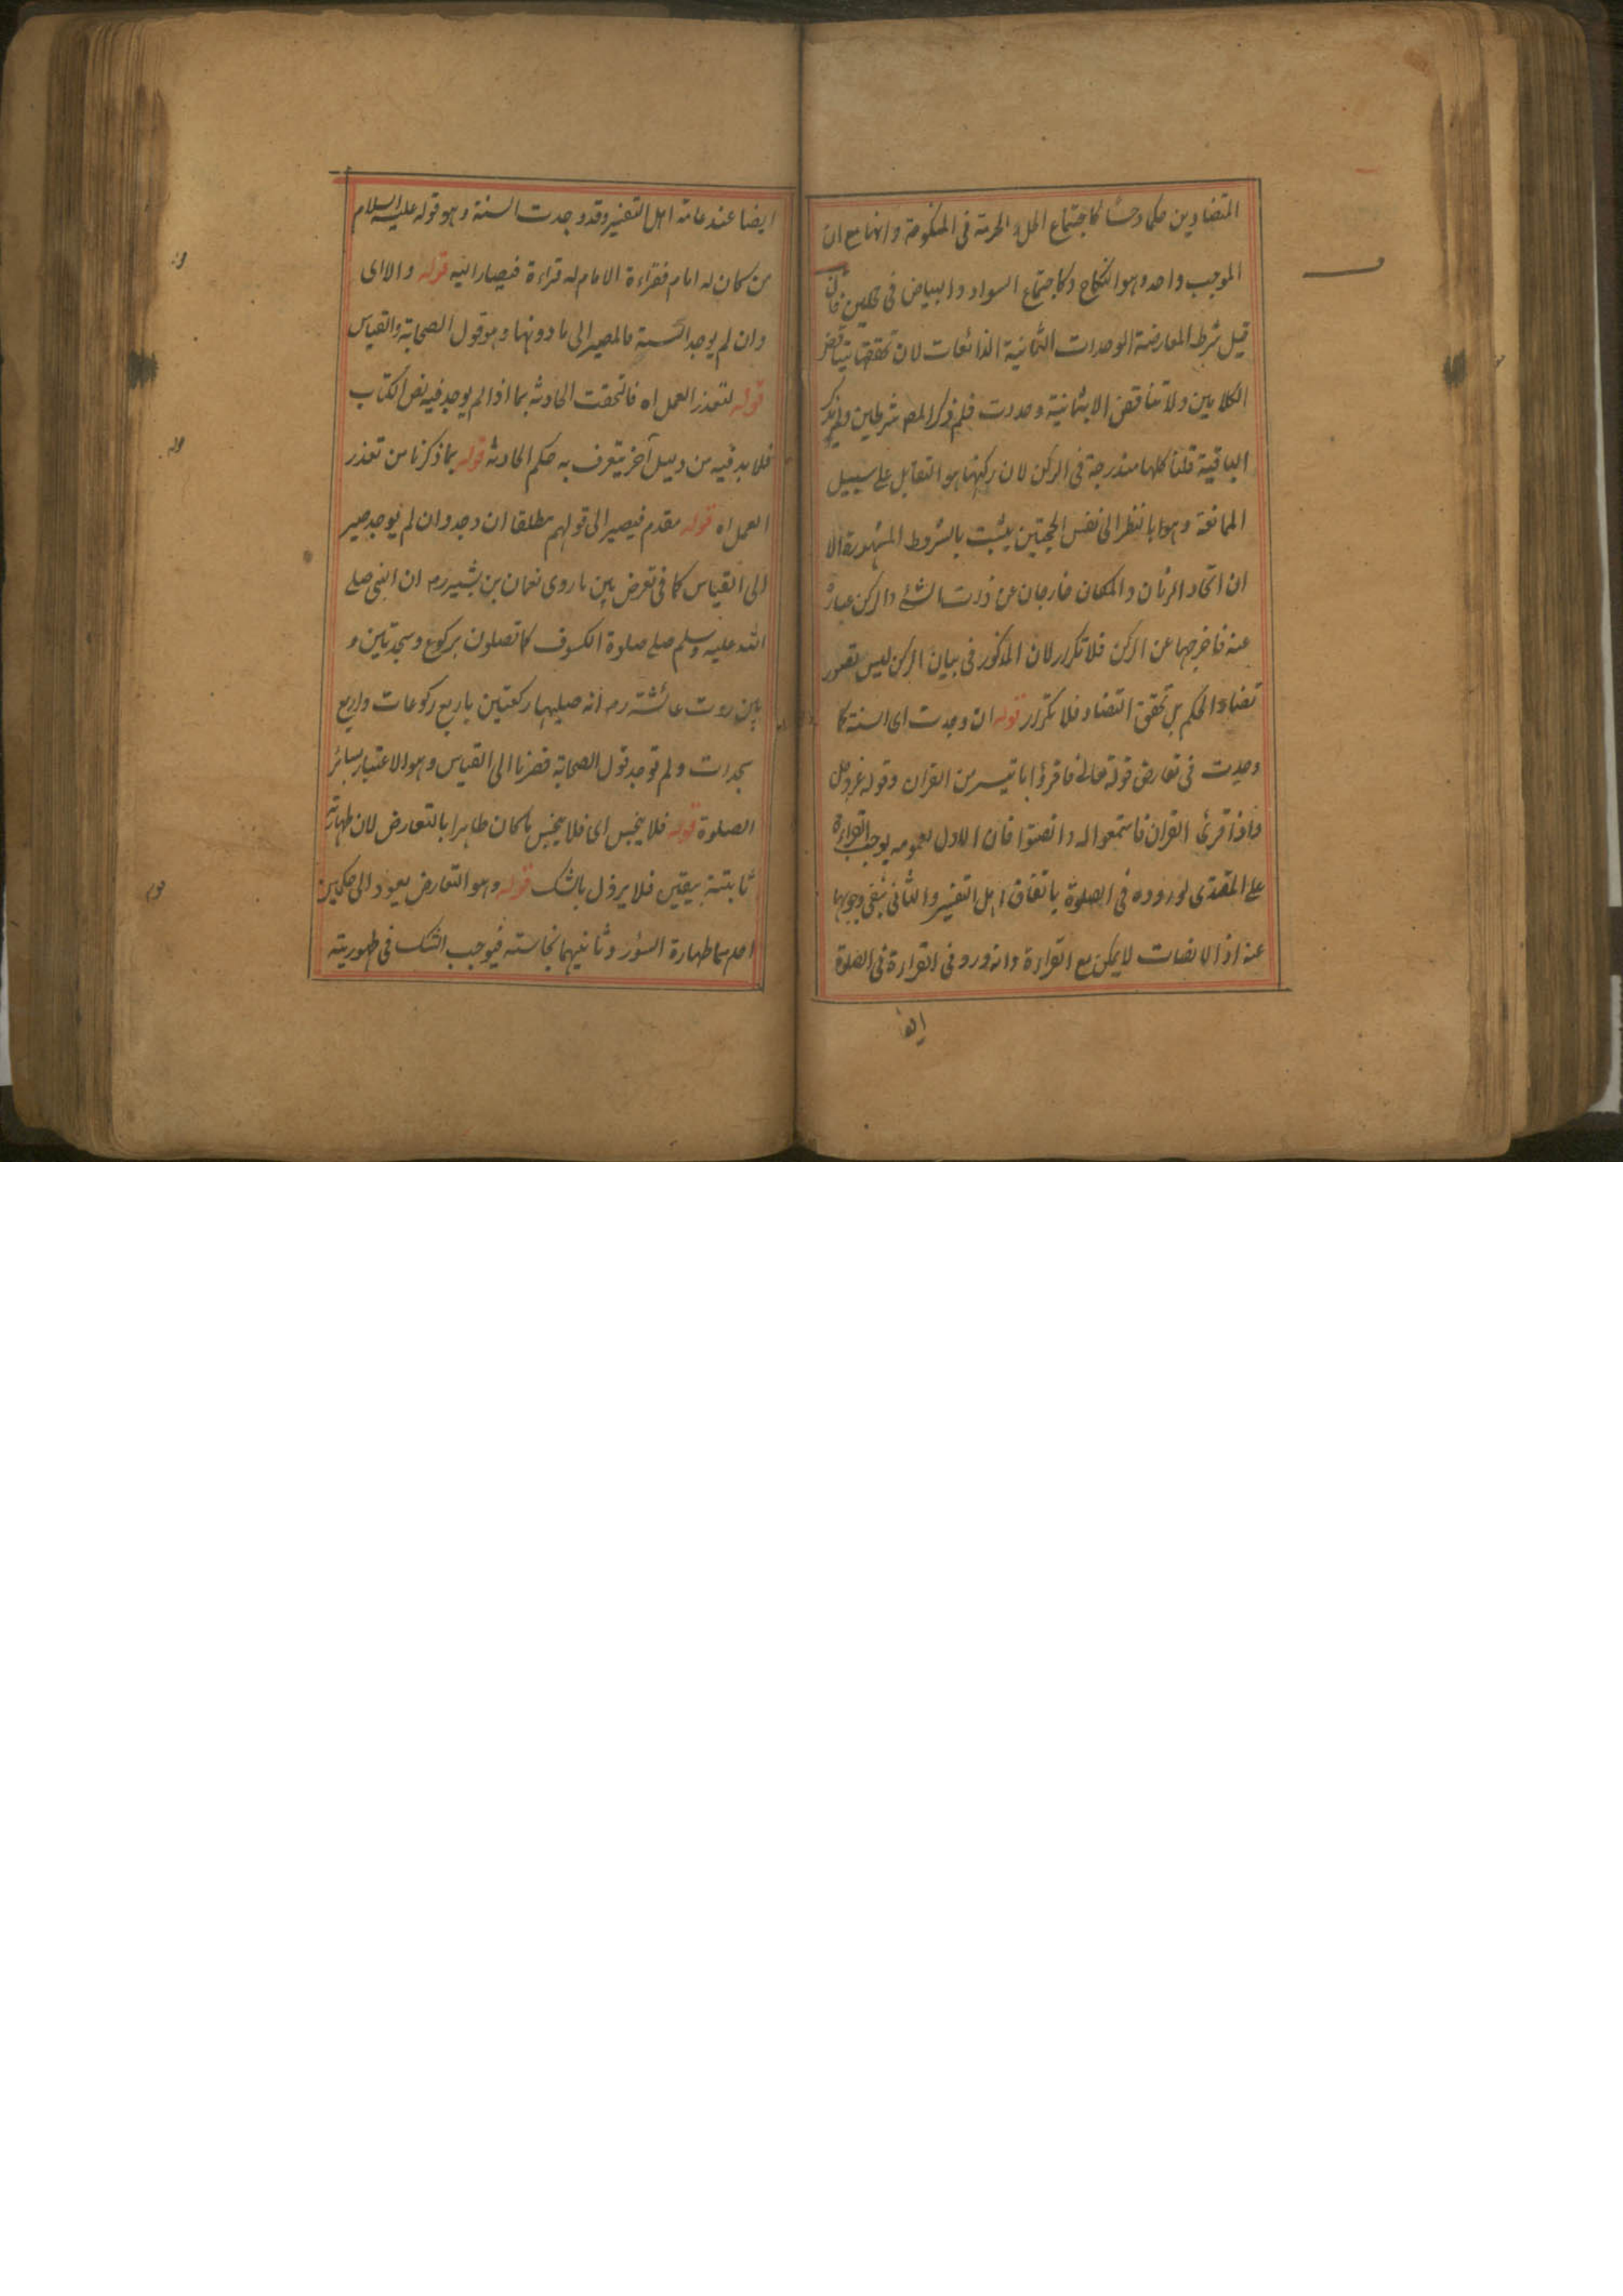 المتضادين حكما وحسا كاجتماع الحل والحرمة في المنكوحة وامها مع ان
الموجب واحد وهو النكاح وكاجتماع السواد والبياض في محلين فان
قيل شرط المعارضة الوحدات الثمانية الذائعات لان تحققها بتناقض
الكلامين ولا تناقض الا بثمانية وحدت فلم ذكر المص شرطين ولم يذكر
الباقية قلنا كلها مندرجة في الركن لان ركنها هو التقابل على سبيل
الممانعة وهو بالنظر الى نفس الحجتين يثبت بالشروط المشهورة الا
ان اتحاد الزمان والمكان خارجان عن ذات الشئ والركن عبارة
عنه فاخرجها عن الركن فلا تكرار لان المذكور في بيان الركن ليس تصور
تضاد الحكم بل تحقق التضاد فلا تكرار قوله ان وجدت اى السنة كا
وجدت في تعارض قوله تعالى فاقرؤا ما تيسر من القران وقوله عز وجل
واذا قرئ القران فاستمعوا له وانصتوا فان الاول بعمومه يوجب القراءة
على المقتدى لوروده في الصلوة باتفاق اهل التفسير والثانى ينفى وجوبها
عنه اذ الانصات لا يمكن مع القراءة وانه ورد في القراءة في الصلوة
ايضا
ايضا عند عامة اهل التفسير وقد وجدت السنة وهو قوله عليه السلام
من كان له امام فقراءة الامام له قراءة فيصار اليه قوله والا اى
وان لم يوجد السنة فالمصير الى ما دونها وهو قول الصحابة والقياس
قوله لتعذر العمل اه فالتحقت الحادثه بما اذا لم يوجد فيه نص الكتاب
فلا بد فيه من دليل آخر يتعرف به حكم الحادثه قوله بما ذكرنا من تعذر
العمل اه قوله مقدم فيصير الى قولهم مطلقا ان وجد وان لم يوجد صير
الى القياس كا في تعرض بين ما روى نعمان بن بشير رم ان النبى صلى
الله عليه وسلم صلى صلوة الكسوف كا تصلون بركوع وسجدتين و
بين روت عائشة رم انه صليها ركعتين باربع ركوعات واربع
سجدات ولم توجد قول الصحابة فصرنا الى القياس وهو الاعتبار بسائر
الصلوة قوله فلا ينجس اى فلا ينجس ما كان طاهرا بالتعارض لان طهارته
ثابتة بيقين فلا يزول بالشك قوله وهو التعارض يعود الى حكمين
احدهما طهارة السؤر وثانيهما نجاسته فيوجب الشك في طهوريته